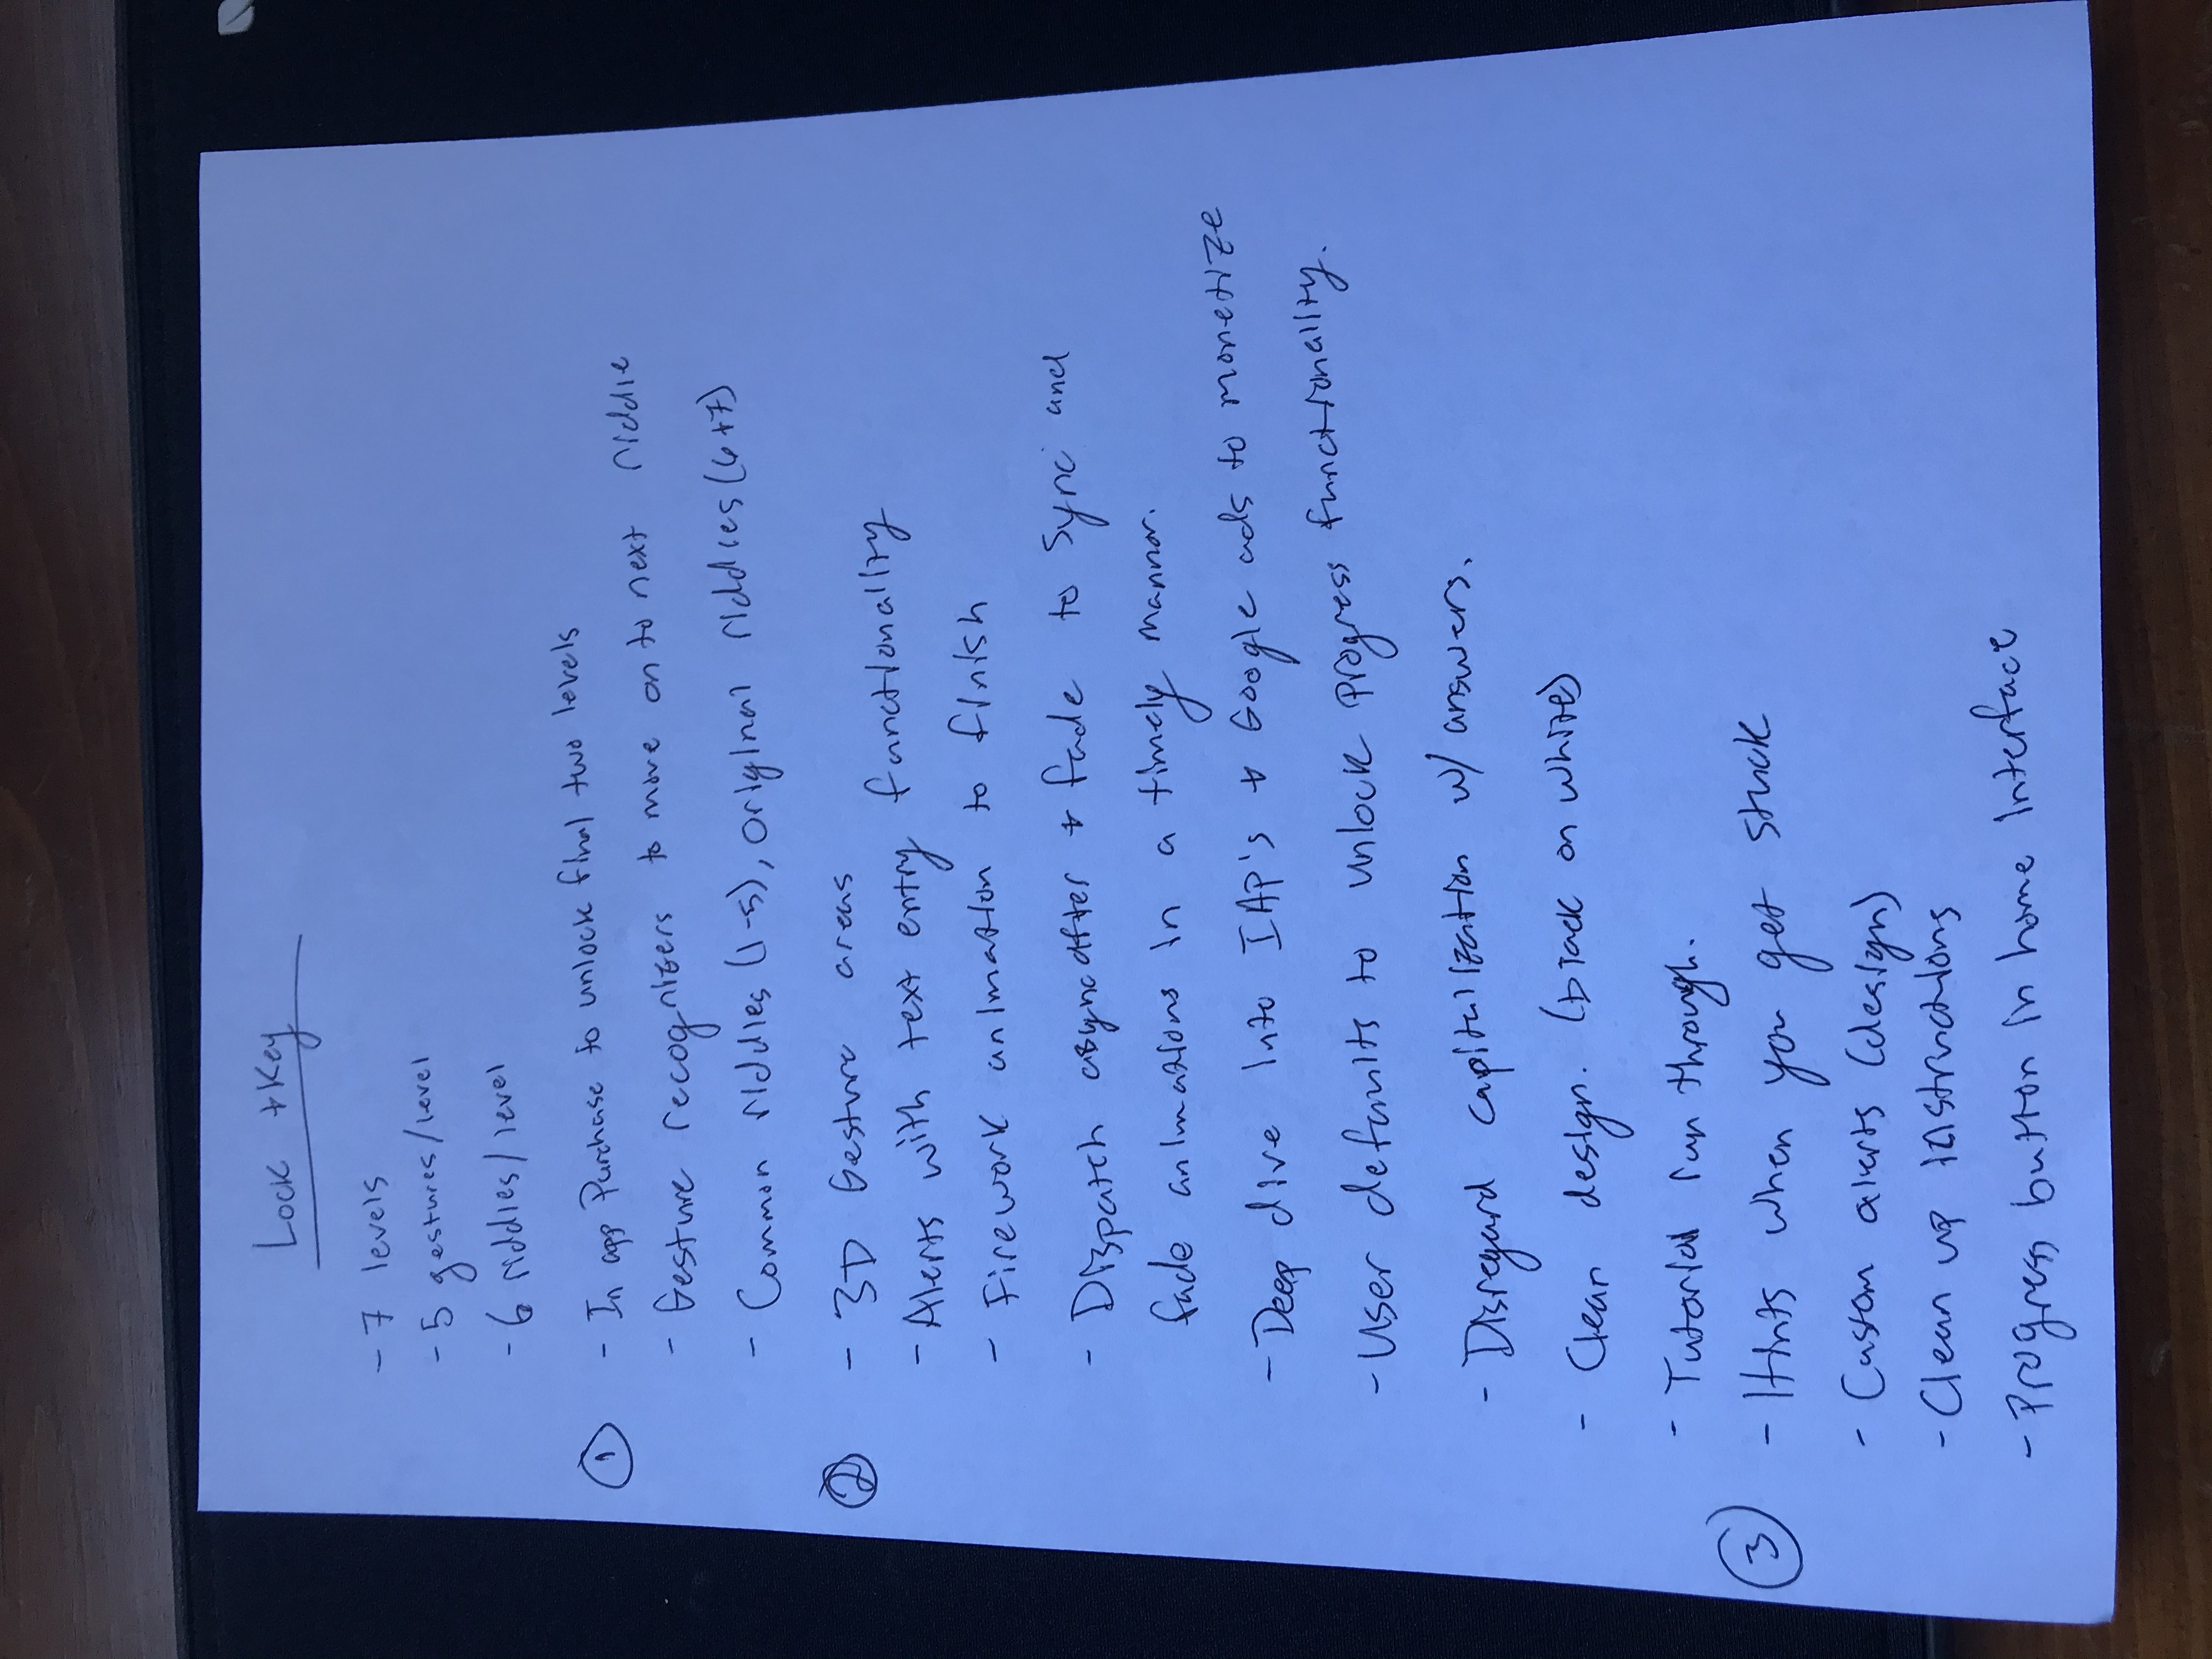 Lock + Key
- 7 levels
- 5 gestures/level
- 6 riddles/level
① - In app Purchase to unlock final two levels
- Gesture recognizers to move on to next riddle
- Common riddles (1-5), original riddles (6+7)
② - 3D Gesture areas
- Alerts with text entry functionality
- Firework animation to finish
- Dispatch asyncafter + fade to sync and
fade animations in a timely mannor.
- Deep dive into IAP's + Google ads to monetize
- User defaults to unlock progress functionality.
- Disregard capitalization w/ answers.
- Clean design. (black on white)
- Tutorial run through.
③ - Hints when you get stuck
- Custom alerts (design)
- Clean up instructions
- Progress button in home interface